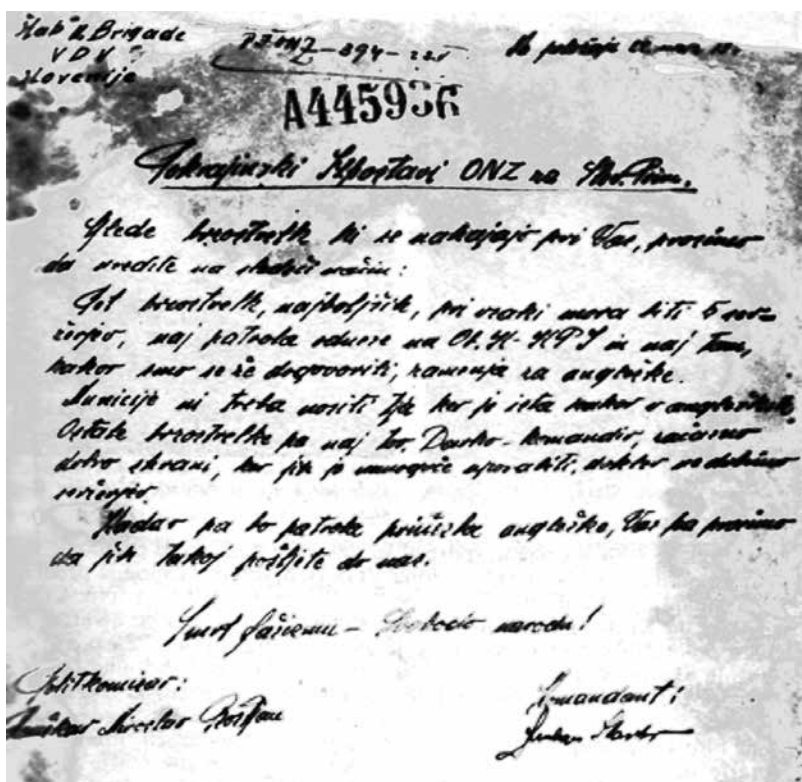 Štab II. Brigade
V D V
Slovenije
A445936
Pokrajinski Ispostavi ONZ za Slov. Prim.
Glede brzostrelk ki se nahajajo pri Vas, prosimo
da uredite na sledeči način:
Pet brzostrelk, najboljših, pri vsaki mora biti 5 sar-
žerjev, naj patrola odnese na in naj tam,
kakor smo se že dogovorili, zamenja za angleške.
Municije ni treba nositi tja ker je ista kakor v
Ostale brzostrelke pa naj tov. Darko - komandir, začasno
dobro shrani, ker jih je mogoče uporabiti, dokler ne dobimo
saržerjev.
Kadar pa bo patrola prinesla angleške, Vas pa prosimo
da jih takoj pošljete do nas.
Smrt fašizmu - Svoboda narodu!
Politkomisar:
Komandant: